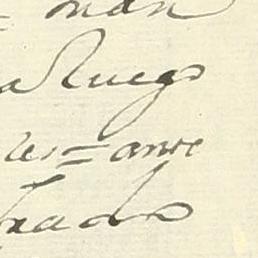 = onan
a Ruego
les = ante
trado